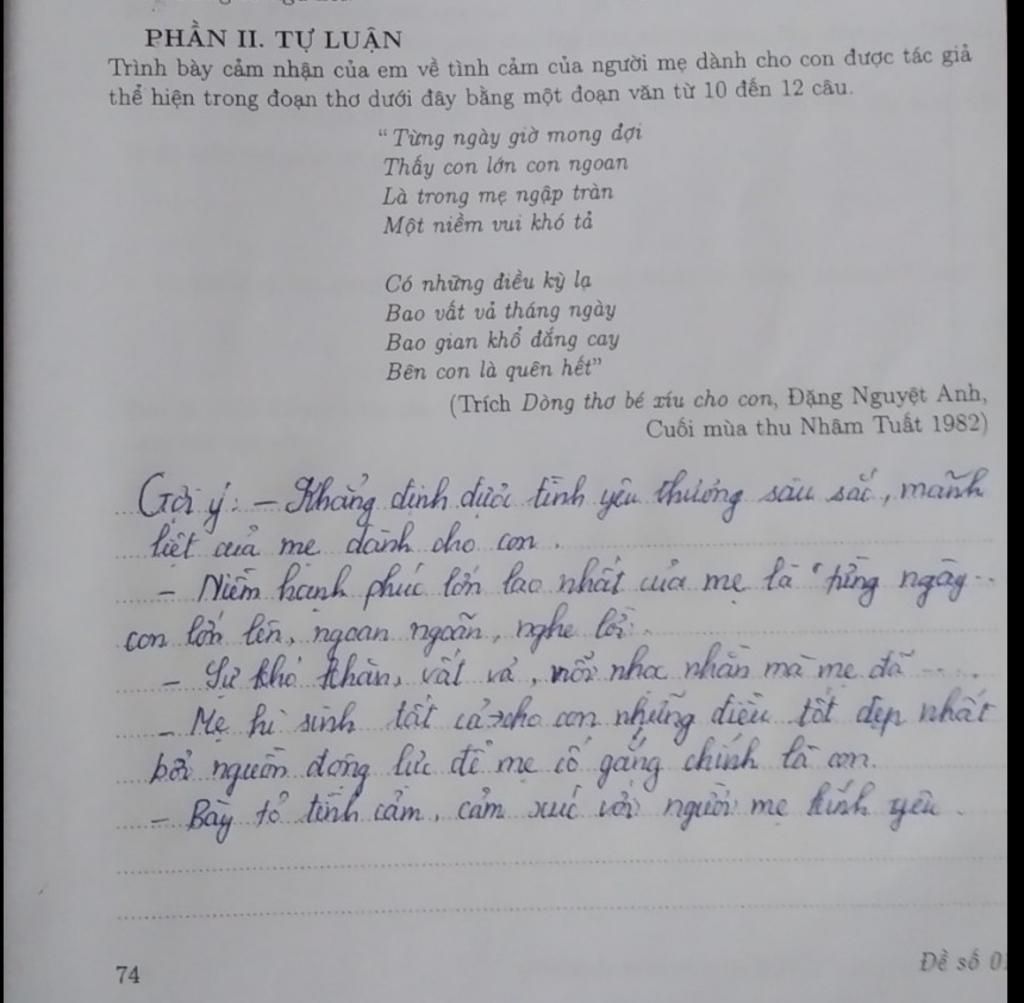 PHẦN II. TỰ LUẬN
Trình bày cảm nhận của em về tình cảm của người mẹ dành cho con được tác giả
thể hiện trong đoạn thơ dưới đây bằng một đoạn văn từ 10 đến 12 câu.
“Từng ngày giờ mong đợi
Thấy con lớn con ngoan
Là trong mẹ ngập tràn
Một niềm vui khó tả
Có những điều kỳ lạ
Bao vất vả tháng ngày
Bao gian khổ đắng cay
Bên con là quên hết”
(Trích Dòng thơ bé xíu cho con, Đặng Nguyệt Anh,
Cuối mùa thu Nhâm Tuất 1982)
Gợi ý: – Khẳng định được tình yêu thương sâu sắc, mãnh
liệt của mẹ dành cho con.
– Niềm hạnh phúc lớn lao nhất của mẹ là từng ngày
con lớn lên, ngoan ngoãn, nghe lời.
– Sự khó khăn, vất vả, nỗi nhọc nhằn mà mẹ đã ...
– Mẹ hi sinh tất cả → cho con những điều tốt đẹp nhất
bởi nguồn động lực để mẹ cố gắng chính là con.
– Bày tỏ tình cảm, cảm xúc với người mẹ kính yêu.
74
Đề số 0